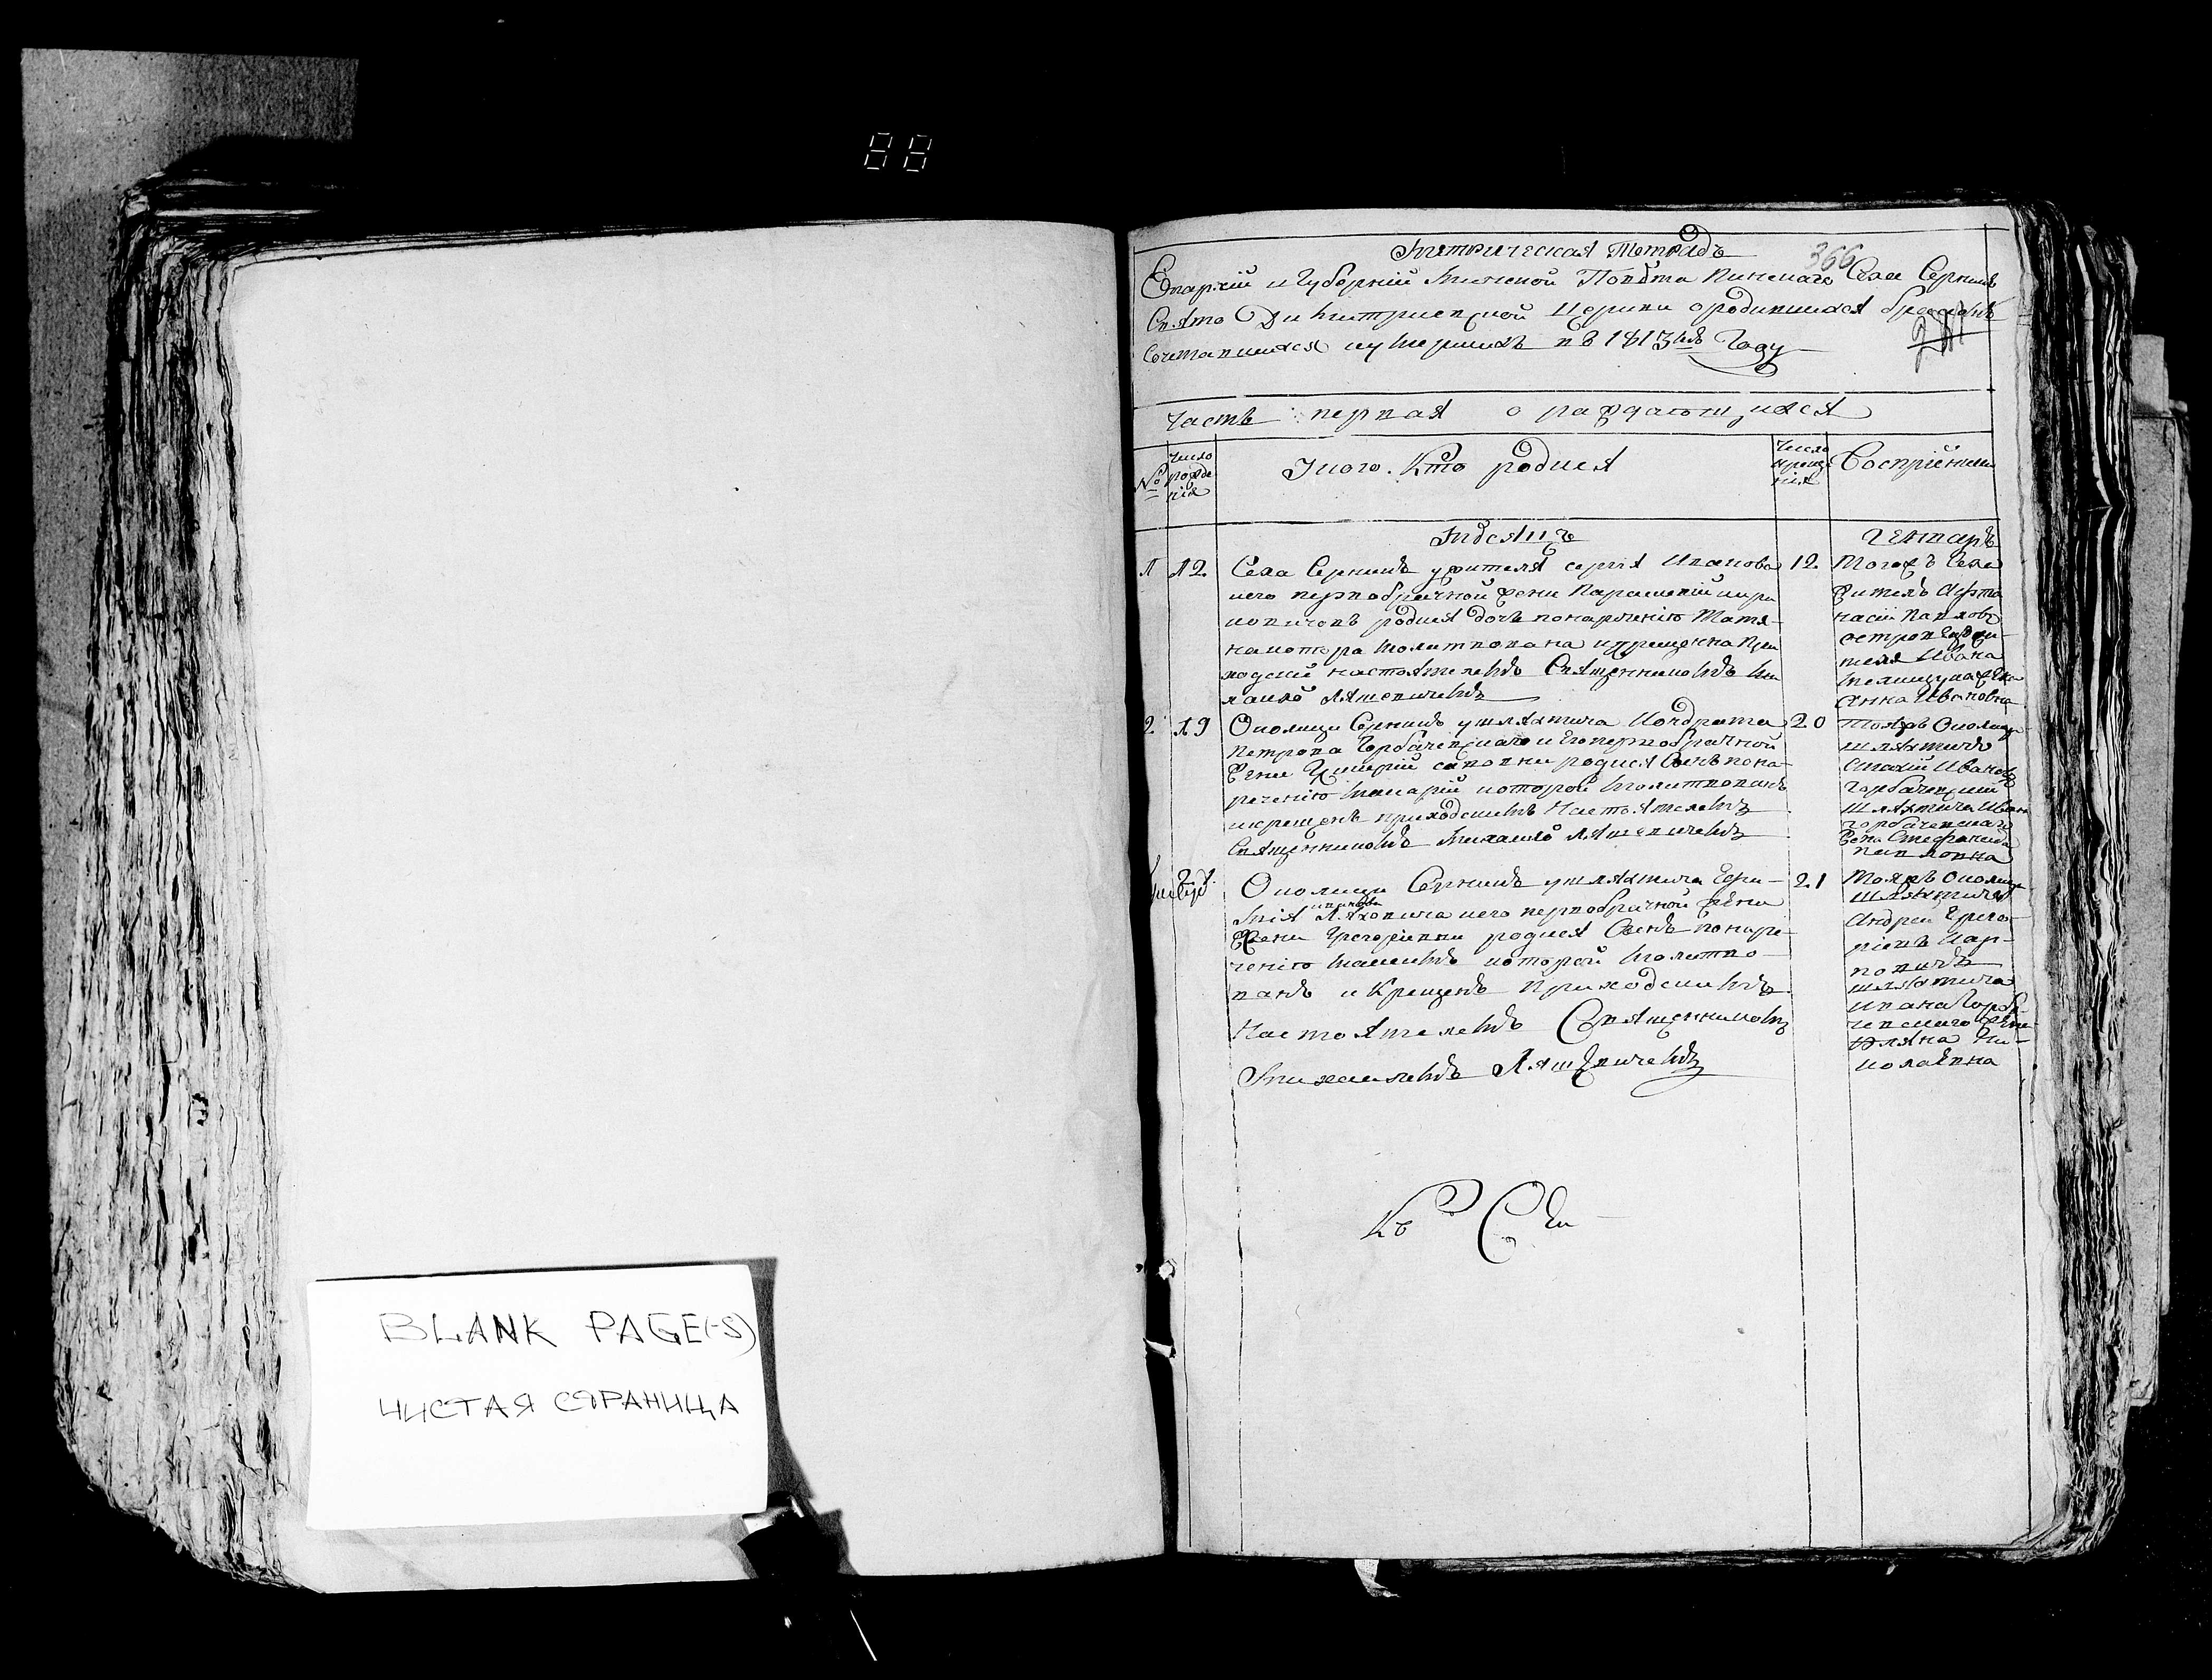 88
BLANK PAGE(-S)
ЧИСТАЯ СТРАНИЦА
Митрическая Тетрадь
366
Епархіи и Губерніи Минской Повѣта Пинскаго Села Серникъ
Свято Димитріевской Церкви о родившихся бракомъ
Сочетавшихся и умершихъ въ 1813мъ Году
Часть первая о раждающихся
№
Число рожде нія
У кого. Кто родися
Число креще нія
Воспріемни
Мѣсяцъ
Генваръ
1 12
Села Серникъ у жителя Сергія Иванова
его первобрачной жени Парасковіи
родися дочь по нареченію Татя-
на котора молитвована и крещенна При
ходскій настоятелемъ Священникомъ Ми
хаило Ляшевичемъ
12.
Тогожъ Села
житель
насій Павловъ
Ивана
Анна Ивановна
2 19
Околици Серникъ у шляхтича Кондрата
Петрова Горбачевскаго и Его первобрачной
Жени родися Синъ по на-
реченію Макарій которой молитвованъ
и крещенъ приходскимъ Настоятелемъ
Священникомъ Михаило Ляшевичемъ
20
Тояжъ Околици
шляхтичъ
Иванов
Горбачевский
шляхтича Иван
горбачевскаго
Жена Стефанида
Павловна
21.
Околици Серникъ у шляхтича Ефи-
мія Ляховича и его первобрачной жени
Грегориевни родися Синъ по наре-
ченію Максимъ которой молитво-
ванъ и Крещенъ Приходскимъ
Настоятелемъ Священникомъ
Михаилемъ Ляшевичемъ
21
Тояжъ Околици
шляхтичъ
Андрей Грего-
ріевъ Кар-
повичъ
шляхтича
Ивана Горба
чевскаго Жена
Уляна Ни-
колаевна
Къ Се